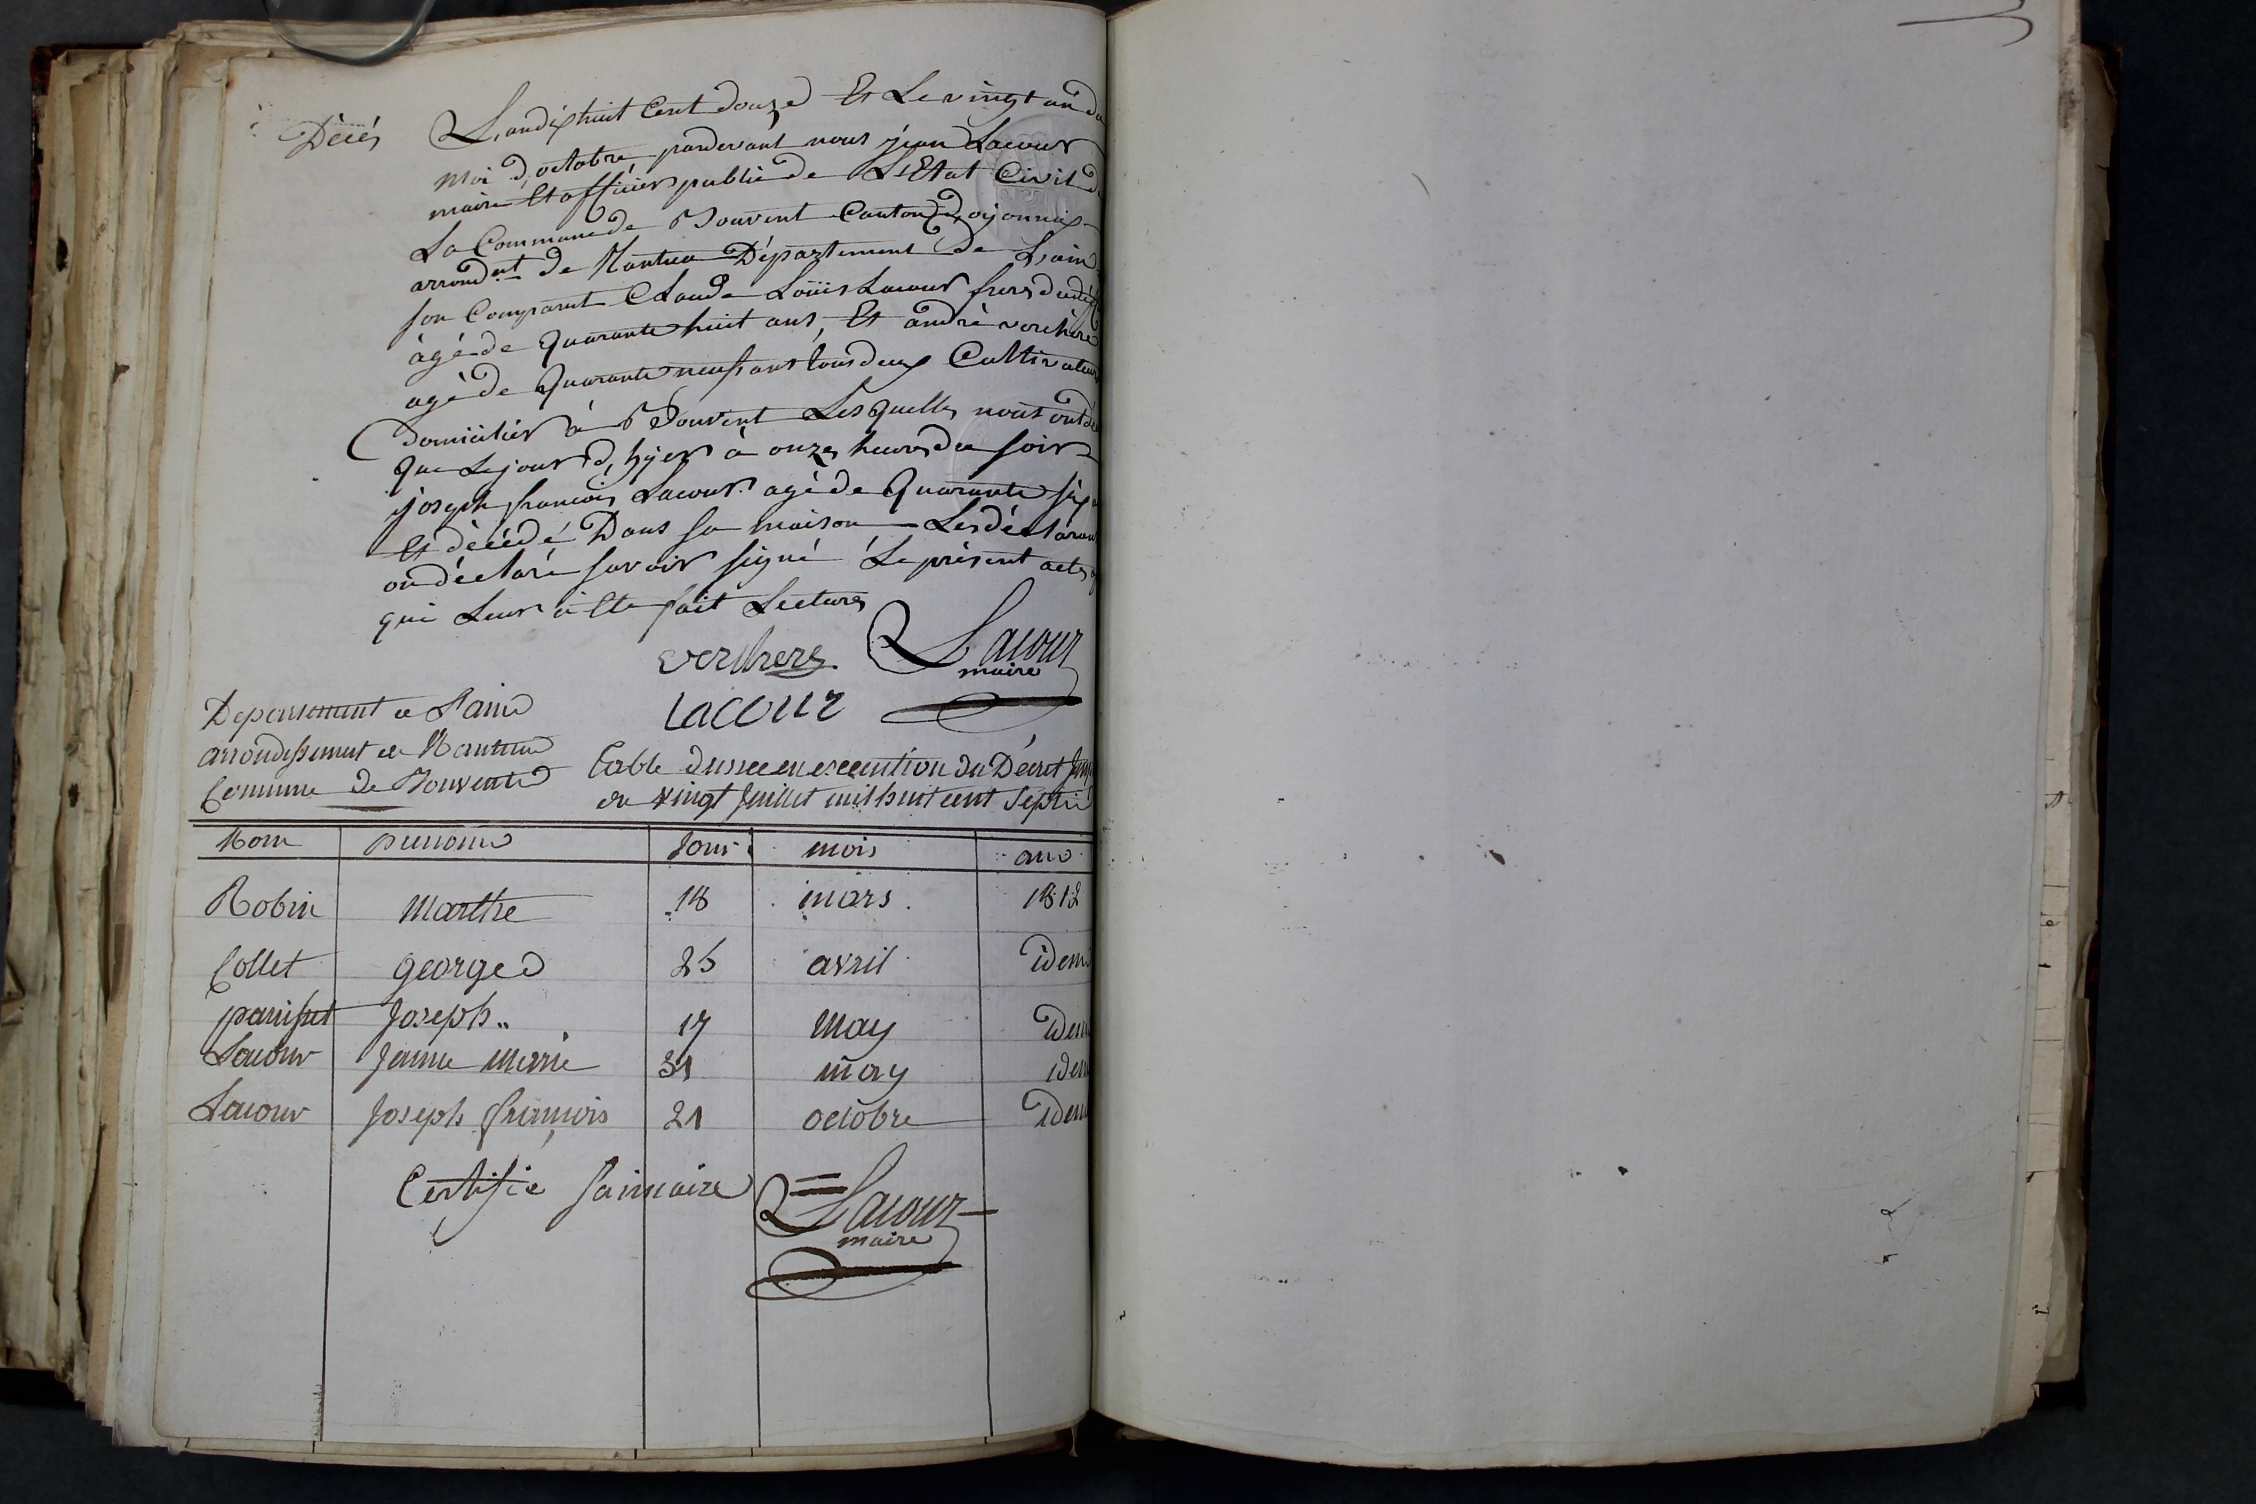 Décés
L'an dix huit Cent douze Et Le vingt un du
moi d'octobre pardevant nous jean Lacour
maire Et officier public de L'Etat Civil de
La Commune de Bouvent Canton d'oyonnax
arrond.nt de Nantua Département de L'ain
son Comparut Claude Loüis Lacour frere du
âgé de Quarante huit ans, Et andré verchere
agé de Quarante neuf ans tous deux Cultivateurs
domiciliés à Bouvent Lesquelles nous ont
Que Le jour d'hyer à onze heures du soir
joseph francois Lacour agé de Quarante six
Et décédé Dans sa maison Les déclarans
on déclaré savoir signé Le présent acte
qui Leur à Ete fait Lecture
verchere Lacour
maire
Lacour
Departement de L'ain
arrondissement de Nantua
Commune de Bouvent
Table dressée en execution du Décret
du vingt Juillet mil huit cent Sept
Nom prenom Jour mois an
Robin Marthe 18 mars 1812
Collet george 25 avril idem
panisset Joseph 17 may idem
Lacour Janne Marie 31 may idem
Lacour Joseph françois 21 octobre idem
Certifié
Lacour
maire